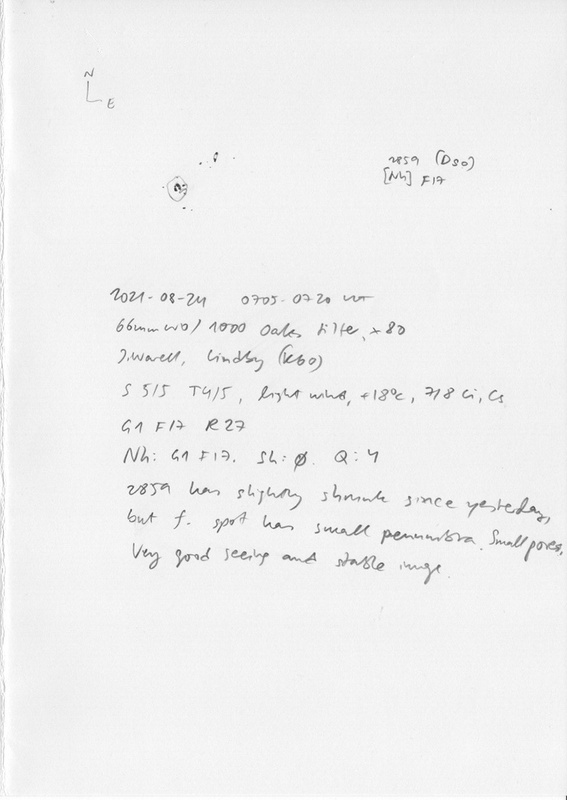 N
E
2859 (Dso)
[Nh] F17
2021-08-24 0705-0720 UT
66mm WO/ 1000 Oaks filter, x80
J.Warell, Lindby (K60)
S 5/5 T4/5, light wind, +18°C, 7/8 Ci, Cs
G1 F17 R27
Nh: G1 F17. Sh: Ø. Q: 4
2859 has slightly shrunk since yesterday,
but f. spot has small penumbra. Small pores.
Very good seeing and stable image.